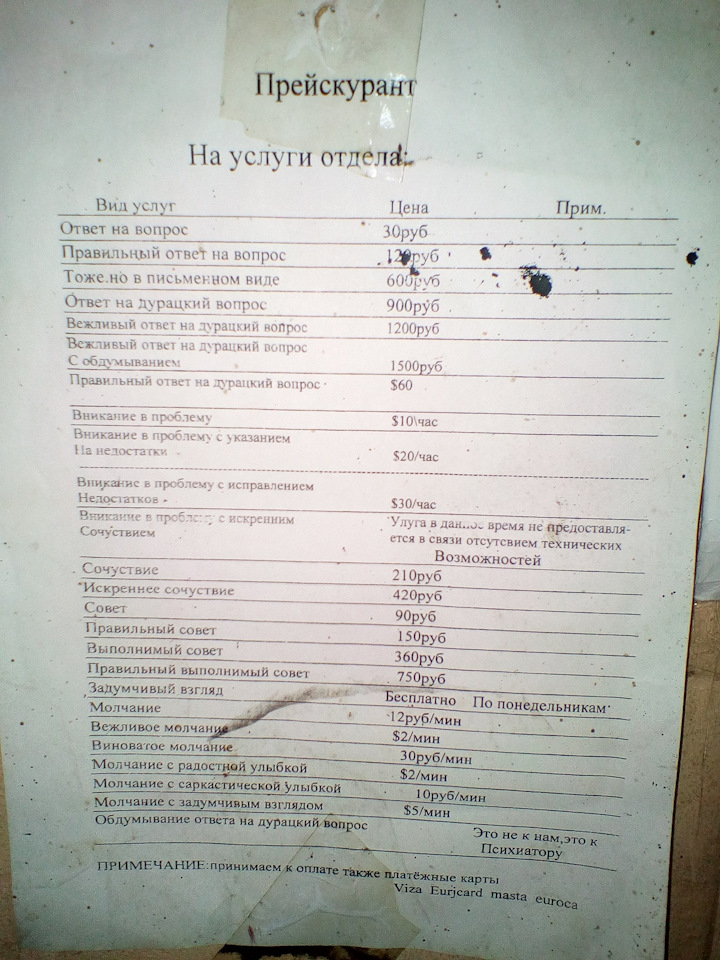 Прейскурант
На услуги отдела:
Вид услуг Цена Прим.
Ответ на вопрос 30руб
Правильный ответ на вопрос 120руб
Тоже.но в письменном виде 600руб
Ответ на дурацкий вопрос 900руб
Вежливый ответ на дурацкий вопрос 1200руб
Вежливый ответ на дурацкий вопрос
С обдумыванием 1500руб
Правильный ответ на дурацкий вопрос $60
Вникание в проблему $10\час
Вникание в проблему с указанием
На недостатки $20/час
Вникание в проблему с исправлением
Недостатков $30/час
Вникание в проблему с искренним Улуга в данное время не предоставля-
Сочуствием ется в связи отсутсвием технических
Возможностей
Сочуствие 210руб
Искреннее сочуствие 420руб
Совет 90руб
Правильный совет 150руб
Выполнимый совет 360руб
Правильный выполнимый совет 750руб
Задумчивый взгляд Бесплатно По понедельникам
Молчание 12руб/мин
Вежливое молчание $2/мин
Виноватое молчание 30руб/мин
Молчание с радостной улыбкой $2/мин
Молчание с саркастической улыбкой 10руб/мин
Молчание с задумчивым взглядом $5/мин
Обдумывание ответа на дурацкий вопрос Это не к нам,это к
Психиатору
ПРИМЕЧАНИЕ:принимаем к оплате также платёжные карты
Viza Eurjcard masta euroca